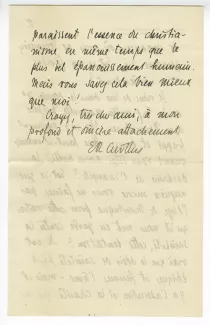 paraissent l'essence du christia-
nisme en même temps que le
plus bel épanouissement humain.
Mais vous savez cela bien mieux
que moi!
Croyez, très cher ami, à mon
profond et sincère attachement
ER Curtius